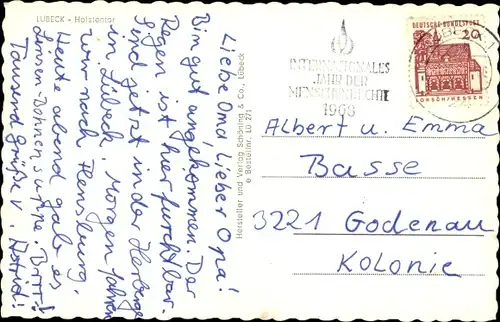 LÜBECK - Holstentor
Liebe Oma Lieber Opa!
Bin gut angekommen. Der
Regen ist hier furchtbar.
Sind jetzt in der Herberge
in Lübeck, morgen fahren
wir nach Flensburg.
Heute abend gab es
Linsen-Bohnensuppe. Brrr-!
Tausend Grüße v.
Hersteller und Verlag Schöning & Co., Lübeck
Bestellnr. LÜ 271
INTERNATIONALES
JAHR DER
MENSCHENRECHTE
1968
DEUTSCHE BUNDESPOST
20
LORSCH/HESSEN
Albert u. Emma
Basse
3221 Godenau
Kolonie